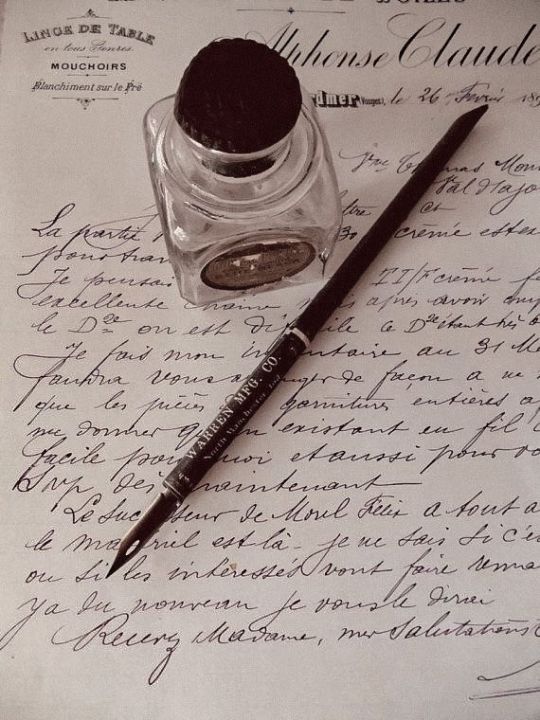 TOILES
LINGE DE TABLE
en tous Genres.
MOUCHOIRS
Blanchiment sur le Pré
Alphonse Claude
rdmer (Vosges), le 26 Février 189
Vve Thomas
Val d'Ajo
La partie 30 crème est
pour
Je pensais III/F crème
excellente chaine après avoir
le Dze on est difficile ce Dze étant très
Je fais mon inventaire au 31 M
faudra vous arranger de façon a
que les pièces garniture entières a
me donner existant en fil
facile pour moi et aussi pour vo
Svp dès maintenant
Le successeur de Morel Félix a tout a
le matériel est là - je ne sais si c'e
ou si les intéressés vont faire
ya du nouveau je vous le dirai
Recevez Madame, mes Salutations
WARREN MFG. CO.
North Manchester, Ind.